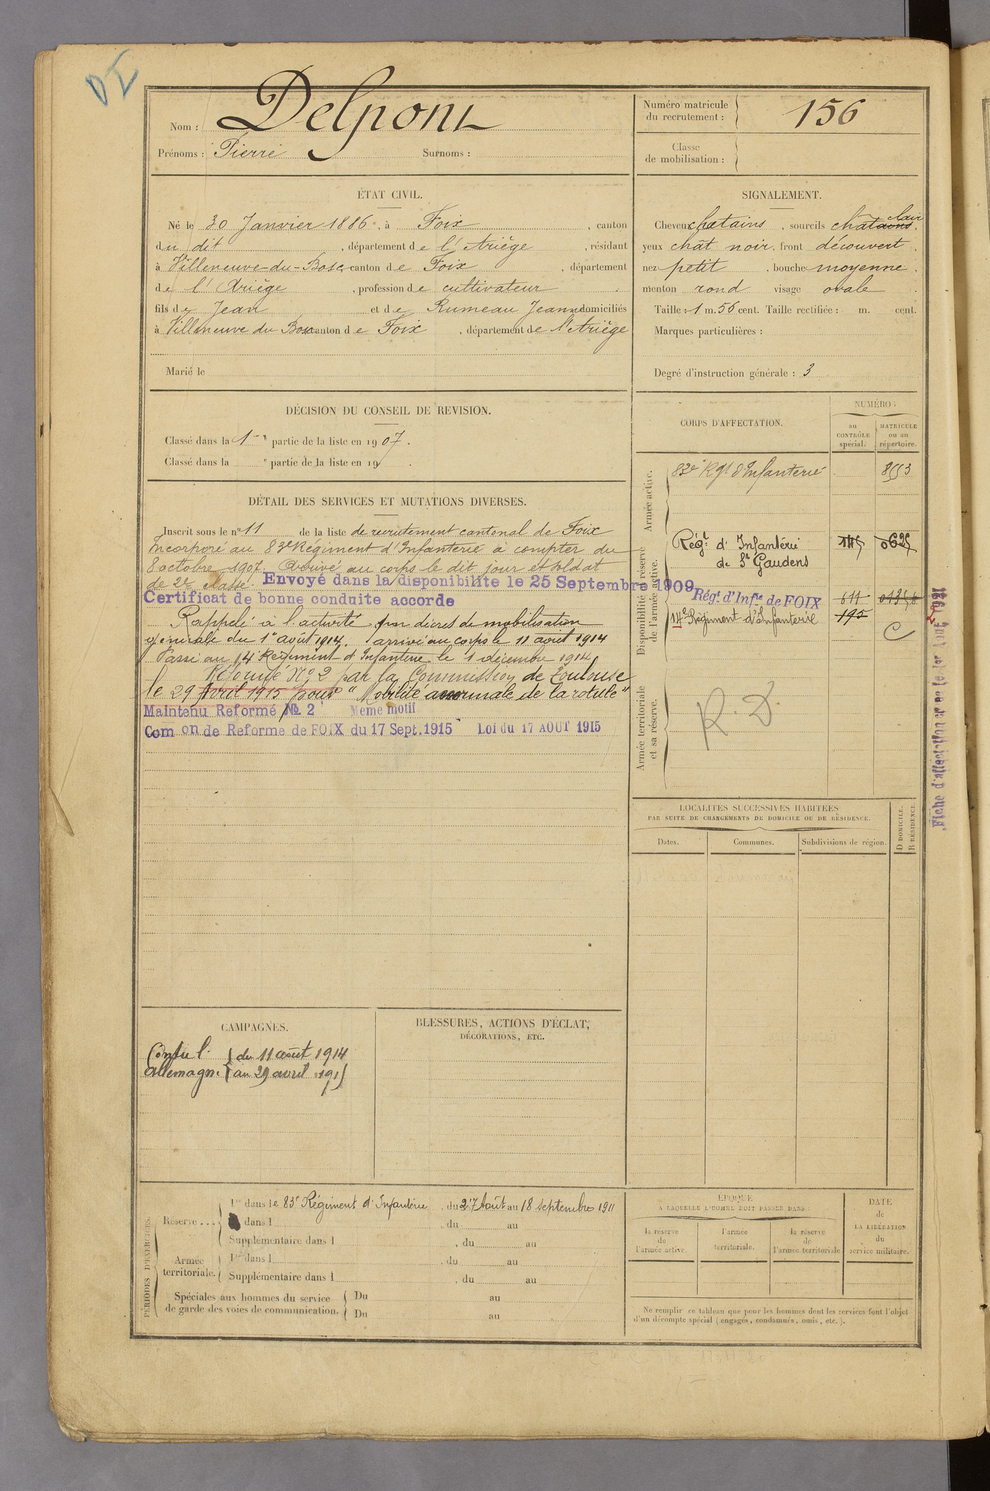 Nom : Delpont
Numéro matricule du recrutement : 156
Prénoms : Pierre Surnoms :
Classe de mobilisation :
ÉTAT CIVIL.
Né le 30 Janvier 1886, à Foix, canton
du dit, département de l'Ariège, résidant
à Villeneuve-du-Bosc canton de Foix, département
de l'Ariège, profession de cultivateur
fils de Jean et de Rumeau Jeanne domiciliés
à Villeneuve du Bosc canton de Foix, département de l'Ariège
Marié le
SIGNALEMENT.
Cheveux chatains, sourcils chatains clair.
yeux chat noir, front découvert,
nez petit, bouche moyenne,
menton rond visage ovale
Taille : 1 m. 56 cent. Taille rectifiée : m. cent.
Marques particulières :
Degré d'instruction générale : 3
DÉCISION DU CONSEIL DE REVISION.
Classé dans la 1re partie de la liste en 1907.
Classé dans la e partie de la liste en 19
DÉTAIL DES SERVICES ET MUTATIONS DIVERSES.
Inscrit sous le n° 11 de la liste de recrutement cantonal de Foix
Incorporé au 83e Régiment d'Infanterie à compter du
8 octobre 1907. Arrivé au corps le dit jour et soldat
de 2e classe. Envoyé dans la disponibilité le 25 Septembre 1909
Certificat de bonne conduite accordé
Rappelé à l'activité par décret de mobilisation
générale du 1er août 1914, arrivé au corps le 11 août 1914
Passé au 14e Régiment d'Infanterie le 1 décembre 1914,
Réformé N° 2 par la Commission de Toulouse
le 29 Avril 1915 pour "Mobilité anormale de la rotule"
Maintenu Reformé № 2 Même motif
Com on de Reforme de FOIX du 17 Sept. 1915 Loi du 17 AOUT 1915
CORPS D'AFFECTATION.
NUMÉRO :
au CONTRÔLE spécial.
MATRICULE ou au répertoire.
Armée active.
83e Rgt d'Infanterie
Disponibilité et réserve de l'armée active.
Régt d'Infanterie
de St Gaudens
Rég.t d'Inf.ie de FOIX 611
14e Régiment d'Infanterie 195
C
Armée territoriale et sa réserve.
R. D.
LOCALITÉS SUCCESSIVES HABITÉES
PAR SUITE DE CHANGEMENTS DE DOMICILE OU DE RÉSIDENCE.
Dates. Communes. Subdivisions de région. D DOMICILE. R RÉSIDENCE
CAMPAGNES.
Contre l' { du 11 août 1914
Allemagne { au 29 avril 1915
BLESSURES, ACTIONS D'ÉCLAT,
DÉCORATIONS, ETC.
PÉRIODES D'EXERCICES.
Réserve ....
1re dans le 83e Régiment d'Infanterie, du 27 Août au 18 septembre 1911
dans l , du au
Supplémentaire dans l , du au
Armée territoriale.
1re dans l , du au
Supplémentaire dans l , du au
Spéciales aux hommes du service de garde des voies de communication.
Du au
Du au
ÉPOQUE
A LAQUELLE L'HOMME DOIT PASSER DANS :
la réserve de l'armée active.
l'armée territoriale.
la réserve de l'armée territoriale
DATE de LA LIBÉRATION du service militaire.
Ne remplir ce tableau que pour les hommes dont les services font l'objet
d'un décompte spécial (engagés, condamnés, omis, etc.).